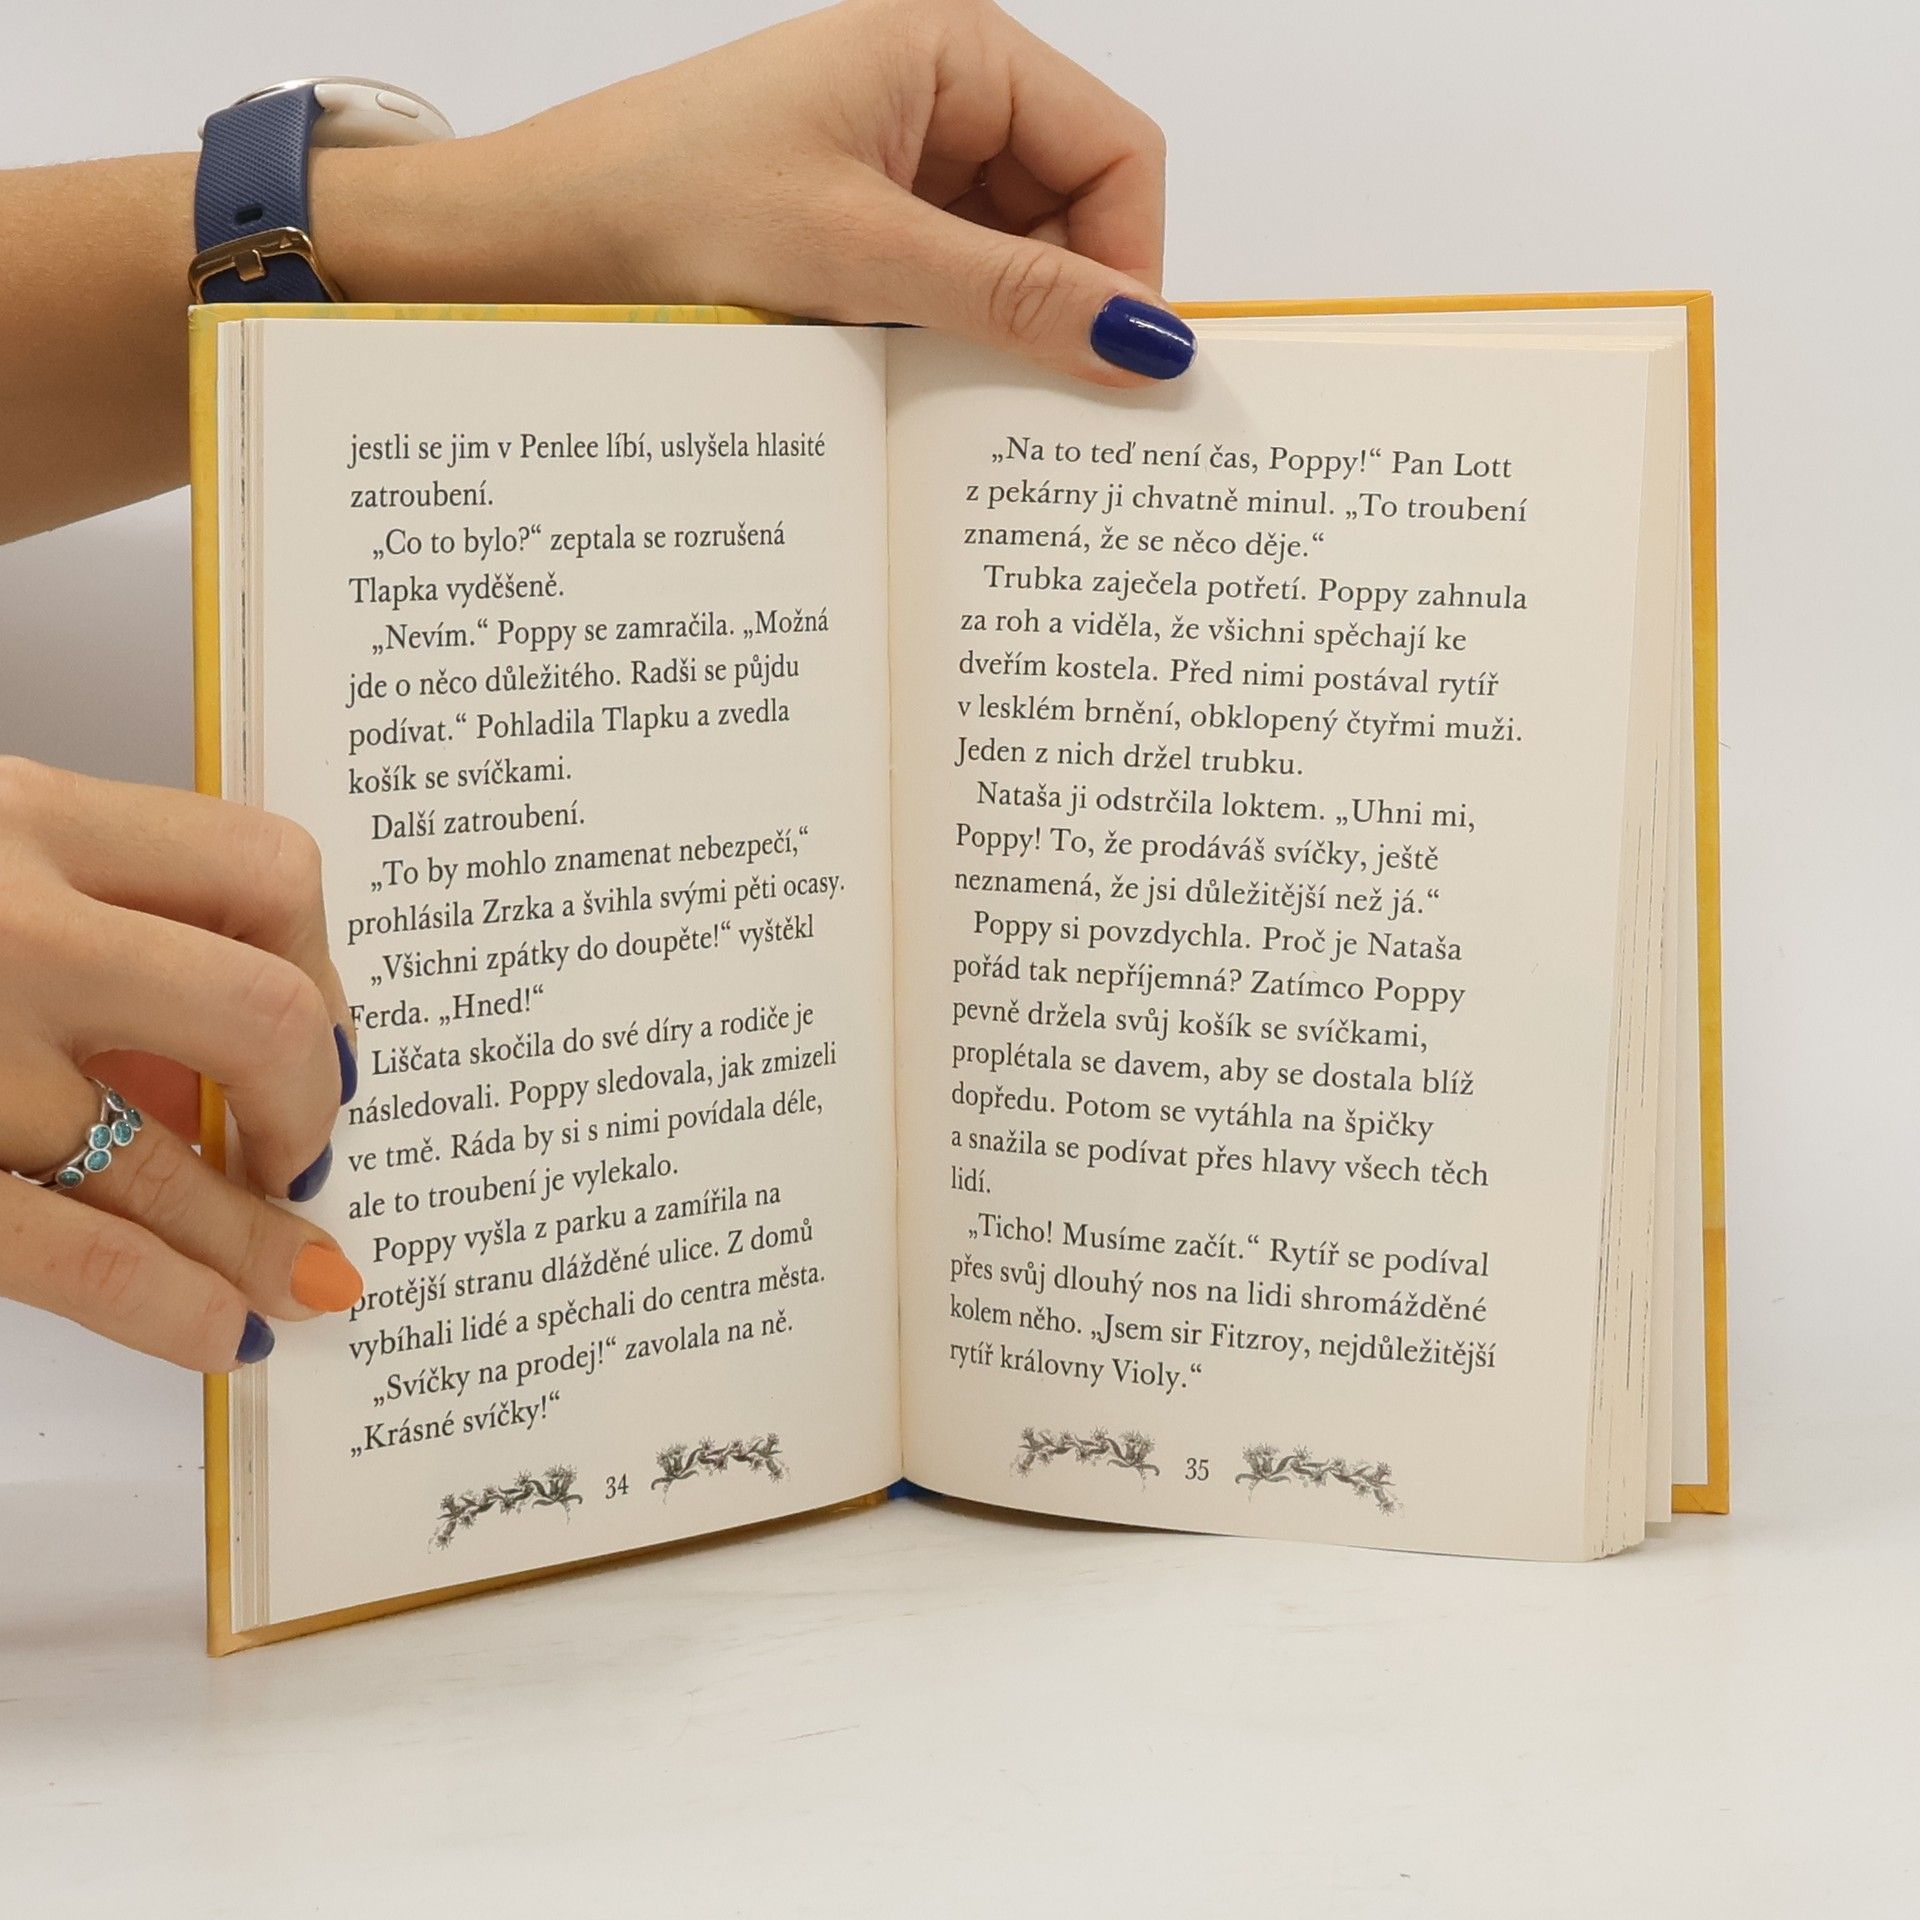 jestli se jim v Penlee líbí, uslyšela hlasité
zatroubení.
„Co to bylo?“ zeptala se rozrušená
Tlapka vyděšeně.
„Nevím.“ Poppy se zamračila. „Možná
jde o něco důležitého. Radši se půjdu
podívat.“ Pohladila Tlapku a zvedla
košík se svíčkami.
Další zatroubení.
„To by mohlo znamenat nebezpečí,“
prohlásila Zrzka a švihla svými pěti ocasy.
„Všichni zpátky do doupěte!“ vyštěkl
Ferda. „Hned!“
Liščata skočila do své díry a rodiče je
následovali. Poppy sledovala, jak zmizeli
ve tmě. Ráda by si s nimi povídala déle,
ale to troubení je vylekalo.
Poppy vyšla z parku a zamířila na
protější stranu dlážděné ulice. Z domů
vybíhali lidé a spěchali do centra města.
„Svíčky na prodej!“ zavolala na ně.
„Krásné svíčky!“
34
„Na to teď není čas, Poppy!“ Pan Lott
z pekárny ji chvatně minul. „To troubení
znamená, že se něco děje.“
Trubka zaječela potřetí. Poppy zahnula
za roh a viděla, že všichni spěchají ke
dveřím kostela. Před nimi postával rytíř
v lesklém brnění, obklopený čtyřmi muži.
Jeden z nich držel trubku.
Nataša ji odstrčila loktem. „Uhni mi,
Poppy! To, že prodáváš svíčky, ještě
neznamená, že jsi důležitější než já.“
Poppy si povzdychla. Proč je Nataša
pořád tak nepříjemná? Zatímco Poppy
pevně držela svůj košík se svíčkami,
proplétala se davem, aby se dostala blíž
dopředu. Potom se vytáhla na špičky
a snažila se podívat přes hlavy všech těch
lidí.
„Ticho! Musíme začít.“ Rytíř se podíval
přes svůj dlouhý nos na lidi shromážděné
kolem něho. „Jsem sir Fitzroy, nejdůležitější
rytíř královny Violy.“
35